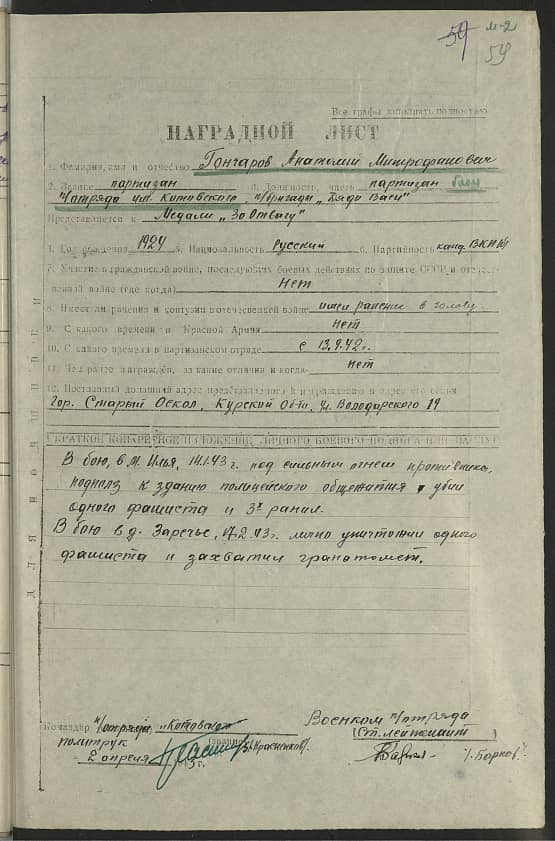 54 м-2
59
Все графы дополнять полностью
НАГРАДНОЙ ЛИСТ
1. Фамилия, имя и отчество Гончаров Анатолий Митрофанович
2. Звание партизан 3. Должность, часть партизан
п/отряда им. Котовского, п/бригады „Дяди Васи"
Представляется к Медали „За Отвагу"
4. Год рождения 1924 5. Национальность Русский 6. Партийность канд. ВКП/б/
7. Участие в гражданской войне, последующих боевых действиях по защите СССР и отечест-
венной войне (где когда) Нет
8. Имеет ли ранения и контузии в отечественной войне имел ранение в голову
9. С какого времени в Красной Армии нет
10. С какого времени в партизанском отряде с 13.9.42г.
11. Чем ранее награжден, за какие отличия и когда нет
12. Постоянный домашний адрес представляемого к награждению и адрес его семьи
гор. Старый Оскол, Курской Обл., ул. Володарского 19
КРАТКОЕ КОНКРЕТНОЕ ИЗЛОЖЕНИЕ ЛИЧНОГО БОЕВОГО ПОДВИГА ИЛИ ЗАСЛУГ
В бою, в М. Илья, 14.1.43 г. под сильным огнем противника,
подполз к зданию полицейского общежития убил
одного фашиста и 3х ранил.
В бою в д. Заречье, 17.2.43г. лично уничтожил одного
фашиста и захватил гранатомет.
ДЛЯ ПОДШИВКИ
Командир п/отряда „Котовского"
политрук /Красненков/.
2 апреля 1943 г.
Военком п/отряда
(Ст. лейтенант)
/Барков/